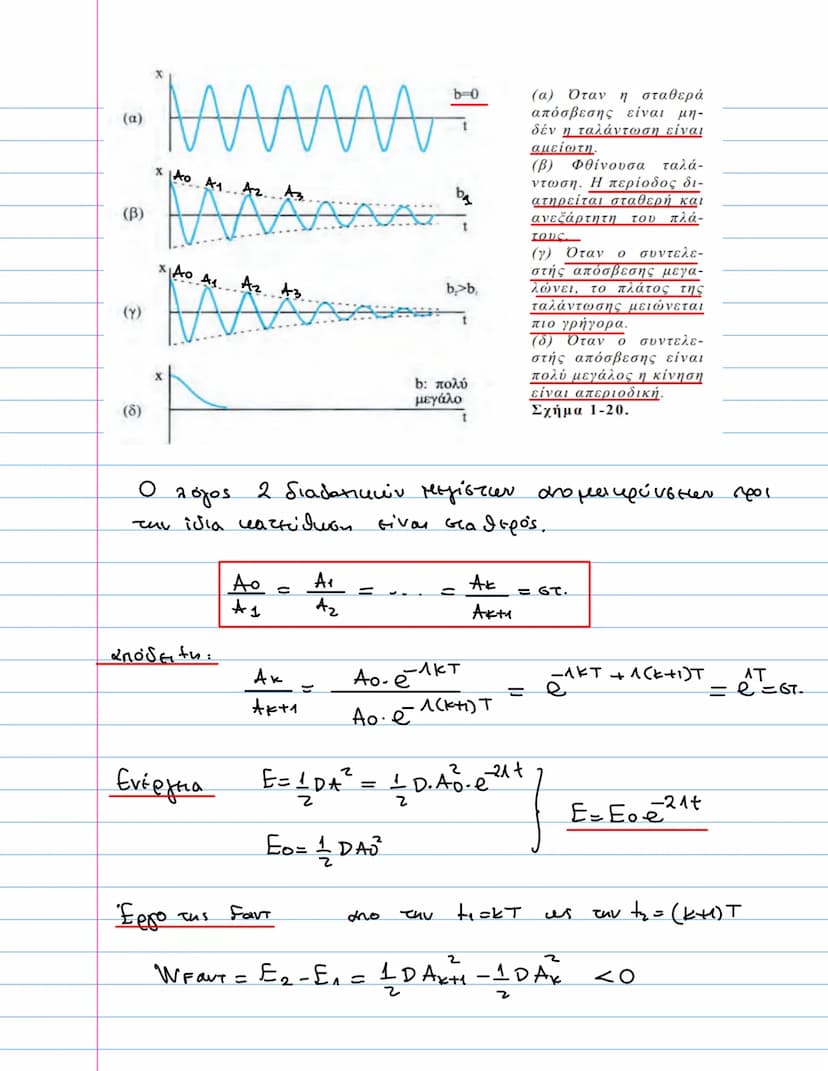 x
b=0
(α)
t
x
A0 A1 A2 A3
b1
(β)
t
x
A0 A1 A2 A3
b₂>b₁
(γ)
t
x
b: πολύ
μεγάλο
(δ)
t
(α) Όταν η σταθερά
απόσβεσης είναι μη-
δέν η ταλάντωση είναι
αμείωτη.
(β) Φθίνουσα ταλά-
ντωση. Η περίοδος δι-
ατηρείται σταθερή και
ανεξάρτητη του πλά-
τους.
(γ) Όταν ο συντελε-
στής απόσβεσης μεγα-
λώνει, το πλάτος της
ταλάντωσης μειώνεται
πιο γρήγορα.
(δ) Όταν ο συντελε-
στής απόσβεσης είναι
πολύ μεγάλος η κίνηση
είναι απεριοδική.
Σχήμα 1-20.
Ο λόγος 2 διαδοχικών μεγίστων απομακρύνσεων προς
την ίδια κατεύθυνση είναι σταθερός.
A0/A1 = A1/A2 = .... = Aκ/Aκ+1 = στ.
απόδειξη:
Aκ/Aκ+1 = A0·e^-ΛκT / A0·e^-Λ(κ+1)T = e^-ΛκT+Λ(κ+1)T = e^ΛT = στ.
Ενέργεια E=1/2 DA² = 1/2 D·A0²·e^-2Λt
E=E0·e^-2Λt
E0=1/2 DA0²
Έργο της Fαντ απο την t1=κT ως την t2=(κ+1)T
WFαντ = E2-E1 = 1/2 D Aκ+1² - 1/2 D Aκ² <0